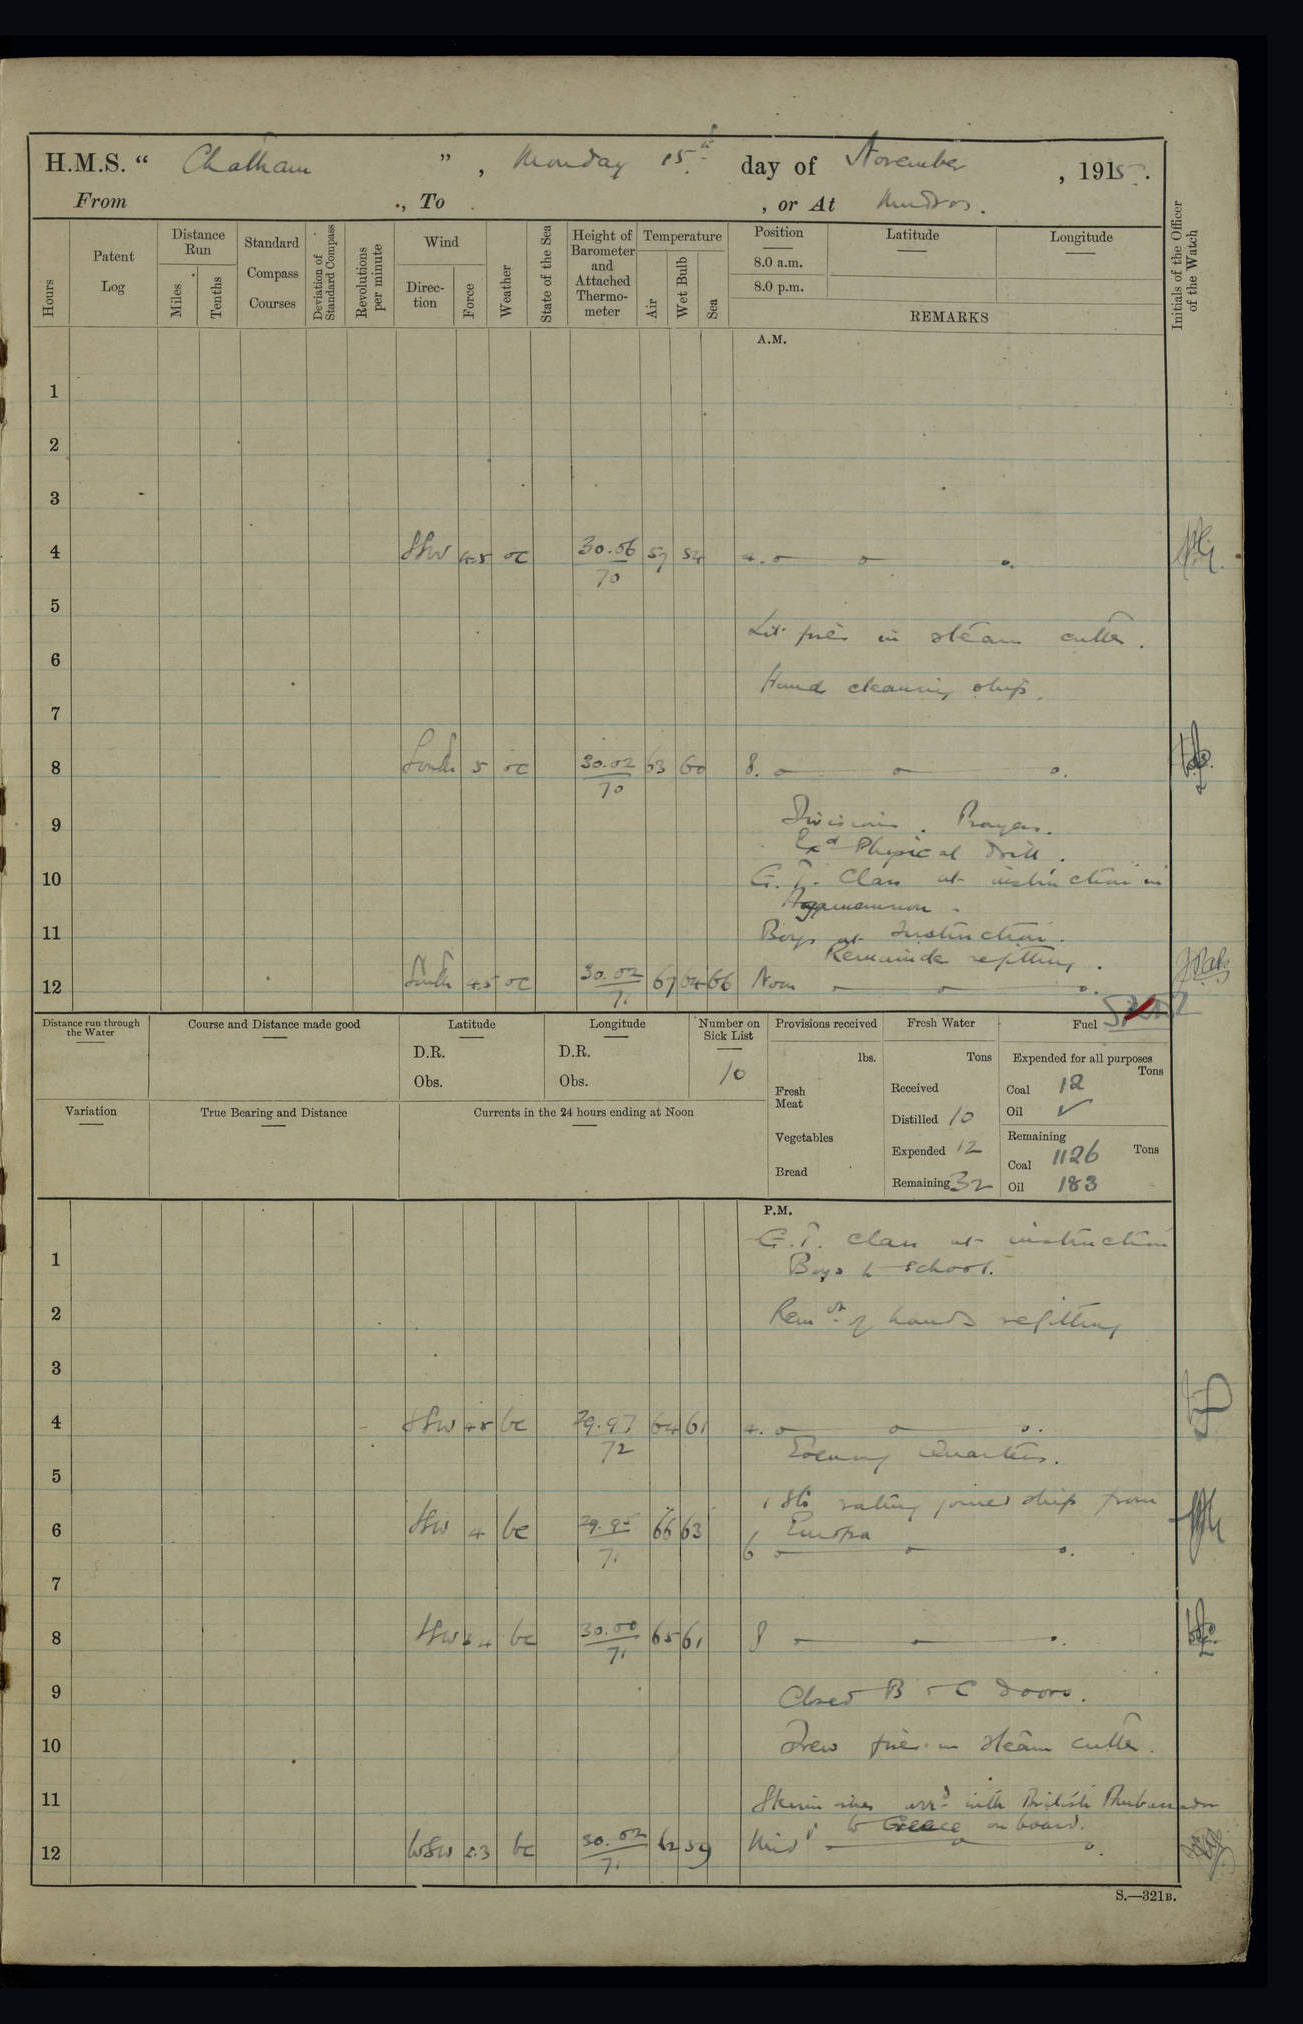 H.M.S. “ Chatham ” , Monday 15th day of November , 1915.
From ., To , or At Mudros.
Hours
Patent Log
Distance Run
Miles
Tenths
Standard Compass Courses
Deviation of Standard Compass
Revolutions per minute
Wind
Direction
Force
Weather
State of the Sea
Height of Barometer and Attached Thermometer
Temperature
Air
Wet Bulb
Sea
Position
8.0 a.m.
8.0 p.m.
Latitude
Longitude
REMARKS
Initials of the Officer of the Watch
A.M.
1
2
3
4 SSW 4.5 oc 30.06 57 54 4.
70
5
Lit fires in steam cutter.
6
Hands cleaning ship.
7
8 South 5 oc 30.02 63 60 8.
70
Divisions. Prayers.
9
Exd Physical Drill.
10 G.T. Class at instruction in
Agamemnon.
11 Boys at Instruction.
Remainder refitting.
12 South 4.5 oc 30.02 67 64 66 Noon
71
Distance run through the Water
Course and Distance made good
Latitude
D.R.
Obs.
Longitude
D.R.
Obs.
Number on Sick List
10
Provisions received
lbs.
Fresh Meat
Vegetables
Bread
Fresh Water
Tons
Received
Distilled 10
Expended 12
Remaining 32
Fuel
Expended for all purposes
Tons
Coal 12
Oil ✓
Remaining
Tons
Coal 1126
Oil 183
Variation
True Bearing and Distance
Currents in the 24 hours ending at Noon
P.M.
G.T. Class at instruction
1 Boys to School.
2 Remdr of hands refitting
3
4 SSW 4.5 bc 29.97 64 61 4.
72
Evening Quarters.
5
1 Sto rating joined ship from
6 SSW 4 bc 29.98 66 63 Europa
71 6
7
8 SSW 3.4 bc 30.00 65 61 8
71
9 Closed B & C doors.
10 Drew fires in steam cutter.
11 arrd with British Ambassador
to Greece on board.
12 WSW 2.3 bc 30.02 62 59 Midt
71
S.—321B.